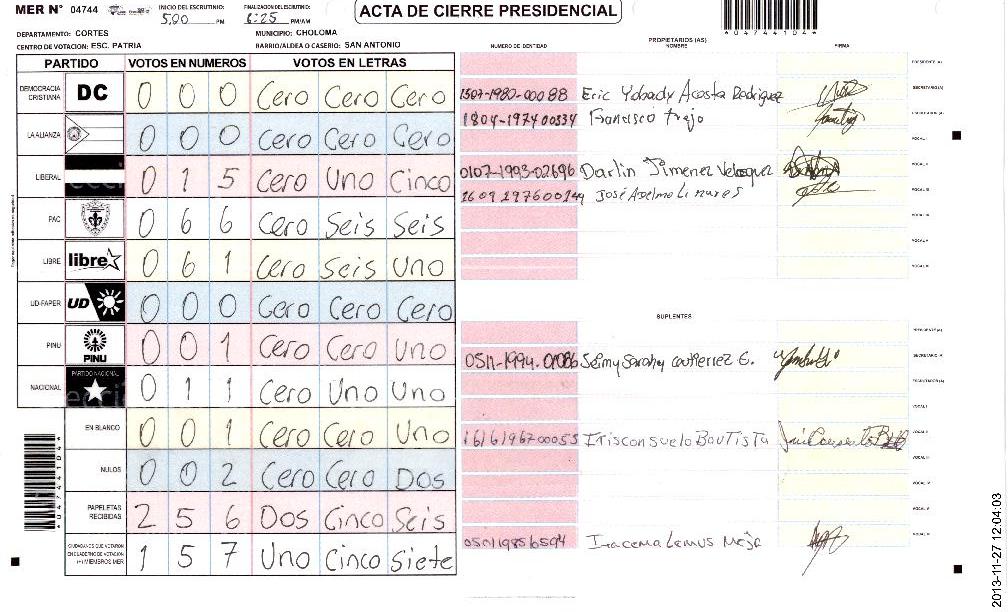 MER N° 04744 INICIO DEL ESCRUTINIO: 5:00 PM FINALIZACION DEL ESCRUTINIO: 6:25 PM/AM
ACTA DE CIERRE PRESIDENCIAL
*04744104*
DEPARTAMENTO: CORTES MUNICIPIO: CHOLOMA
CENTRO DE VOTACION: ESC. PATRIA BARRIO/ALDEA O CASERIO: SAN ANTONIO
PARTIDO VOTOS EN NUMEROS VOTOS EN LETRAS
DEMOCRACIA CRISTIANA DC 0 0 0 Cero Cero Cero
LA ALIANZA 0 0 0 Cero Cero Cero
LIBERAL 0 1 5 Cero Uno Cinco
PAC 0 6 6 Cero Seis Seis
LIBRE libre 0 6 1 Cero Seis Uno
UD-FAPER UD 0 0 0 Cero Cero Cero
PINU PINU 0 0 1 Cero Cero Uno
NACIONAL PARTIDO NACIONAL 0 1 1 Cero Uno Uno
EN BLANCO 0 0 1 Cero Cero Uno
NULOS 0 0 2 Cero Cero Dos
PAPELETAS RECIBIDAS 2 5 6 Dos Cinco Seis
CIUDADANOS QUE VOTARON EN CUADERNO DE VOTACION (+) MIEMBROS MER 1 5 7 Uno Cinco Siete
*04744104*
PROPIETARIOS (AS)
NUMERO DE IDENTIDAD NOMBRE FIRMA
PRESIDENTE (A)
1307-1980-00088 Eric Yobady Acosta Rodriguez SECRETARIO (A)
1804-1974 00334 Francisco Trejo ESCRUTADOR (A)
VOCAL I
0107-1993-02696 Darlin Jimenez Velasquez VOCAL II
1609 1976 00144 José Anselmo Linares VOCAL III
VOCAL IV
VOCAL V
VOCAL VI
SUPLENTES
PRESIDENTE (A)
0511-1994-01086 Seimy Sarahy Gutierrez G. SECRETARIO (A)
ESCRUTADOR (A)
VOCAL I
1616196700055 Iris Consuelo Bautista VOCAL II
VOCAL III
VOCAL IV
VOCAL V
050119856594 Iracema Lemus Mejia VOCAL VI
2013-11-27 12:04:03